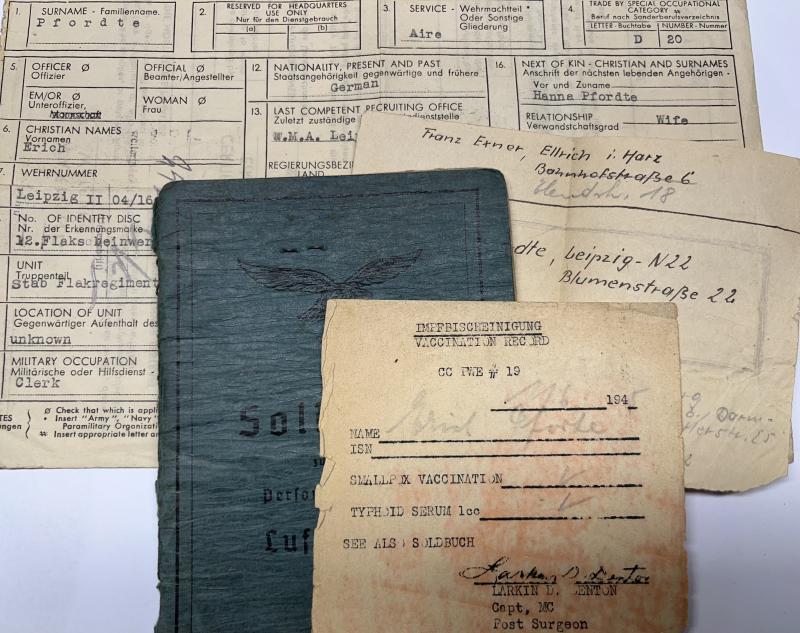 1. SURNAME - Familienname.
Pfordte
2. RESERVED FOR HEADQUARTERS
USE ONLY
Nur für den Dienstgebrauch
(a) (b)
3. SERVICE - Wehrmachtteil *
Oder Sonstige
Gliederung
Aire
4. TRADE BY SPECIAL OCCUPATIONAL
CATEGORY #
Beruf nach Sonderberufsverzeichnis
LETTER-Buchtabe NUMBER-Nummer
D 20
5. OFFICER Ø
Offizier
OFFICIAL Ø
Beamter/Angestellter
EM/OR Ø
Unteroffizier,
Mannschaft
WOMAN Ø
Frau
12. NATIONALITY, PRESENT AND PAST
Staatsangehörigkeit gegenwärtige und frühere
German
16. NEXT OF KIN - CHRISTIAN AND SURNAMES
Anschrift der nächsten lebenden Angehörigen -
Vor und Zuname
Hanna Pfordte
RELATIONSHIP
Verwandschaftsgrad Wife
13. LAST COMPETENT RECRUITING OFFICE
Zuletzt zuständige
W.M.A.
6. CHRISTIAN NAMES
Vornamen
Erich
WEHRNUMMER
Leipzig II 04/16
No. OF IDENTITY DISC
Nr. der Erkennungsmarke
UNIT
Truppenteil
Stab Flakregiment
LOCATION OF UNIT
Gegenwärtiger Aufenthalt des
unknown
MILITARY OCCUPATION
Militärische oder Hilfsdienst -
Clerk
Ø Check that which is appli
* Insert "Army", "Navy"
Paramilitary Organizat
# Insert appropriate letter an
Franz Exner, Ellrich i. Harz
Bahnhofstraße 6
dte, Leipzig-N22
Blumenstraße 22
Sol
Luf
IMPFBISCHEINIGUNG
VACCINATION RECORD
CC PWE # 19
194
NAME Erich Pfordte
ISN
SMALLPOX VACCINATION
TYPHOID SERUM 1cc
SEE ALSO SOLDBUCH
Larkin D. Denton
LARKIN D. DENTON
Capt, MC
Post Surgeon